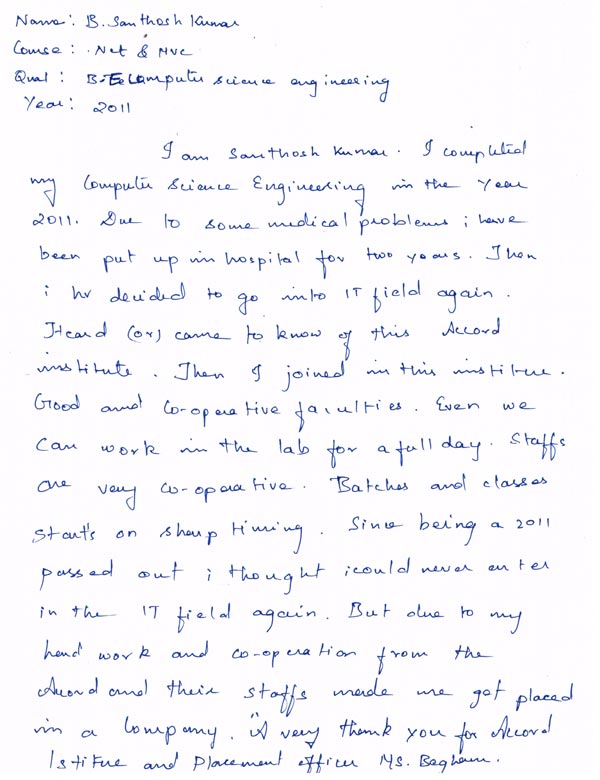 Name: B. Santhosh Kumar
Course: .Net & MVC
Qual: B.E Computer science engineering
Year: 2011
I am Santhosh Kumar. I completed
my Computer Science Engineering in the year
2011. Due to some medical problems i have
been put up in hospital for two years. Then
i hv decided to go into IT field again.
Heard (or) came to know of this Accord
institute. Then I joined in this institue.
Good and co-operative faculties. Even we
can work in the lab for a full day. Staffs
are very co-operative. Batches and classes
start's on sharp timing. Since being a 2011
passed out i thought i could never enter
in the IT field again. But due to my
hard work and co-operation from the
Accord and their staffs made me get placed
in a Company. A very thank you for Accord
Istitue and Placement officer Ms.